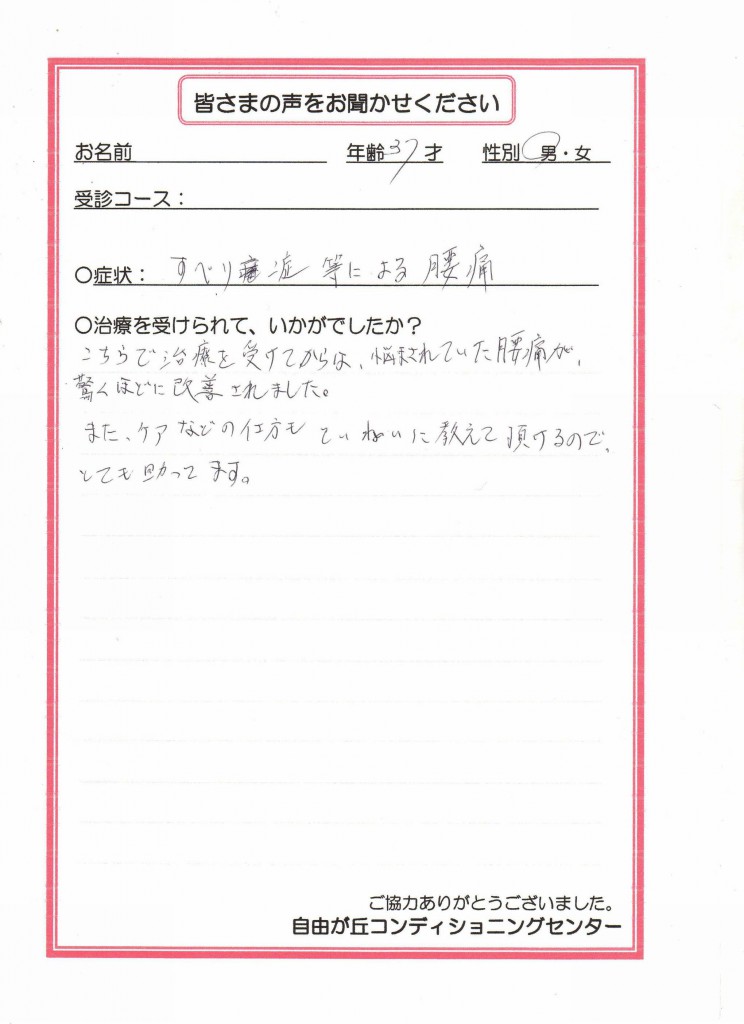 皆さまの声をお聞かせください
お名前 年齢37才 性別 男・女
受診コース：
〇症状： すべり症等による腰痛
〇治療を受けられて、いかがでしたか？
こちらで治療を受けてからは、悩まされていた腰痛が、
驚くほどに改善されました。
また、ケアなどの仕方もていねいに教えて頂けるので、
とても助ってます。
ご協力ありがとうございました。
自由が丘コンディショニングセンター